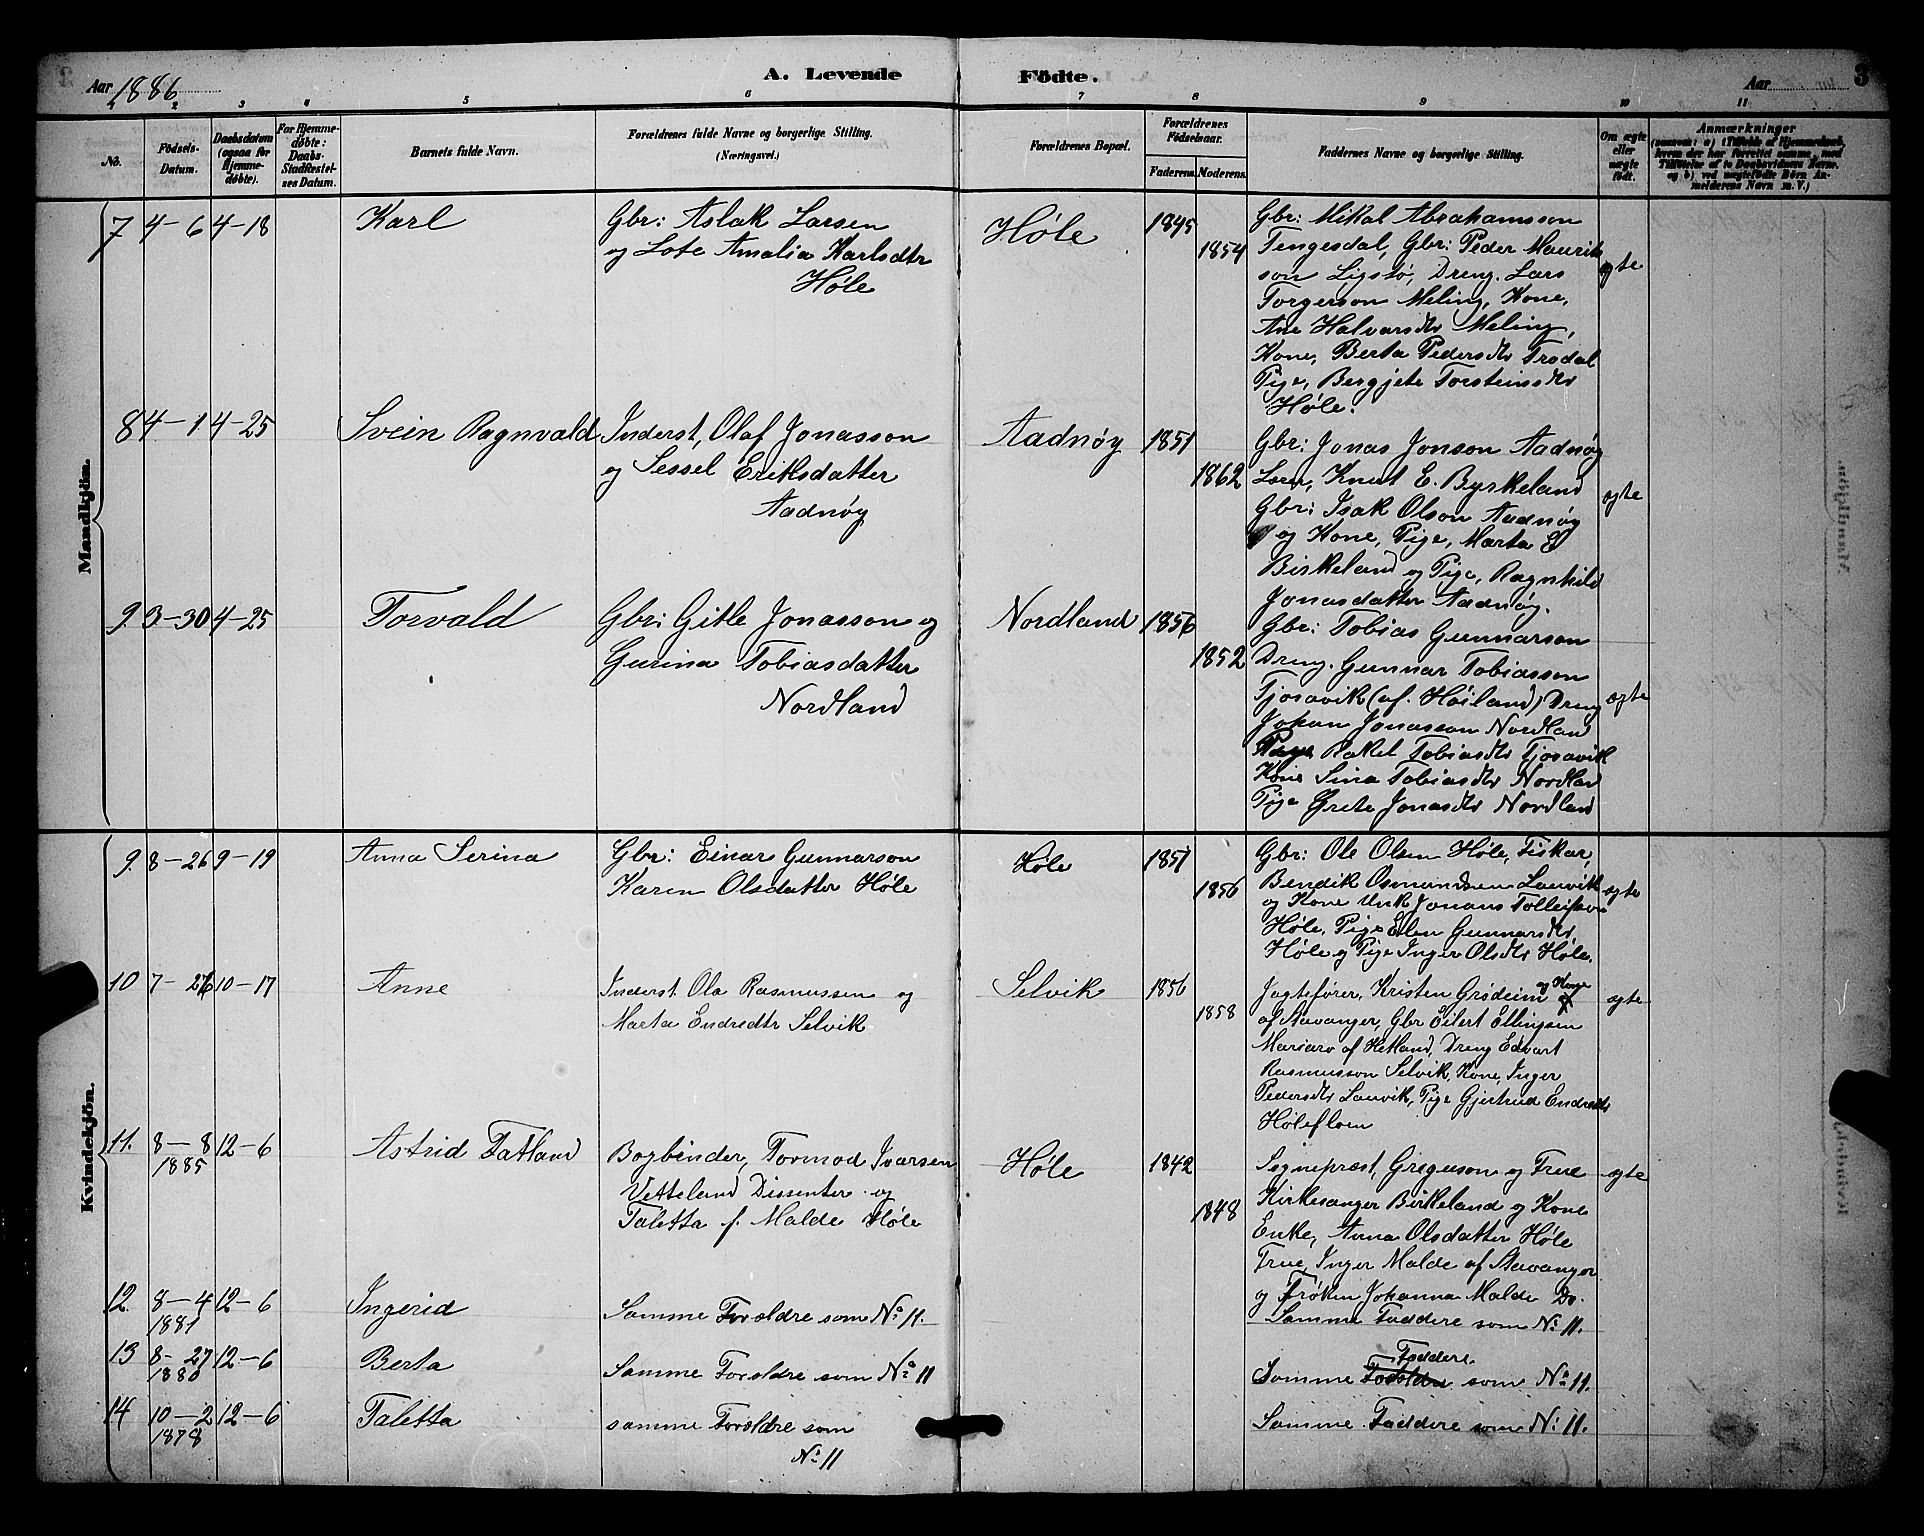 Aar 1886
A. Levende Födte.
Aar 3
1 2 3 4 5 6 7 8 9 10 11
No.
Födsels-Datum.
Daabsdatum (ogsaa for Hjemme-døbte).
For Hjemme-døbte: Daabs-Stadfæstel-ses Datum.
Barnets fulde Navn.
Forældrenes fulde Navne og borgerlige Stilling. (Næringsvei.)
Forældrenes Bopæl.
Forældrenes Födselsaar.
Faderens. Moderens.
Faddernes Navne og borgerlige Stilling.
Om ægte eller uægte födt.
Anmærkninger
Mandkjön.
7 4-6 4-18 Karl
Gbr: Aslak Larsen
og Lote Amalia Karlsdtr
Høle
Høle 1845
1854
Gbr: Mikal Abrahamsson
Tengesdal, Gbr: Peder Maurit
son Ligstø, Dreng. Lars
Torgerson Meling, Kone,
Ane Halvarsdtr Meling,
Kone, Berta Pedersdtr Trodal
Pige, Bergjete Torsteinsdtr
Høle.
ægte
8 4-1 4-25 Svein Ragnvald
Inderst, Olaf Jonasson
og Sessel Eriksdatter
Aadnøy
Aadnøy 1851
1862
Gbr: Jonas Jonson Aadnøy
Lærer, Knut E. Byrkeland
Gbr: Isak Olson Aadnøy
og Kone, Pige, Marta E
Birkeland og Pige, Ragnhild
Jonasdatter Aadnøy.
ægte
9 3-30 4-25 Torvald
Gbr: Gitle Jonasson og
Gurina Tobiasdatter
Nordland
Nordland 1856
1852
Gbr: Tobias Gunnarson
Dreng. Gunnar Tobiasson
Tjosavik (af. Høiland) Dreng
Johan Jonasson Nordland
Pige Rakel Tobiasdtr Tjosavik
Kone Sina Tobiasdtr Nordland
Pige Grete Jonasdtr Nordland
ægte
Kvindekjön.
9. 8-26 9-19 Anna Serina
Gbr: Einar Gunnarson
Karen Olsdatter Høle
Høle 1851
1856
Gbr: Ole Olsen Høle, Fisker,
Bendik Osmundsen Lauvik
og Kone Unk Jonans Tolleifsen
Høle, Pige Elen Gunnarsdtr
Høle og Pige Inger Olsdtr Høle.
ægte
10 7-26 10-17 Anne
Inderst. Ola Rasmussen og
Marta Endredtr Selvik
Selvik 1856
1858
Jagtefører, Kristen Grødeim og Kone
af Stavanger, Gbr Eilert Ellingsen
Mariaro af Hetland, Dreng Edvart
Rasmusson Selvik, Kone, Inger
Pedersdtr Lauvik, Pige Gjertrud Endredtr
Hølefloen
ægte
11. 8-8 1885 12-6 Astrid Fatland
Bogbinder, Tormod Ivarsen
Vetteland Dissenter og
Taletta f. Malde Høle
Høle 1842
1848
Sognepræst, Greguson og Frue
Kirkesanger Birkeland og Kone
Enke, Anna Olsdatter Høle
Frue, Inger Malde af Stavanger
og Frøken Johanna Malde Do.
ægte
12. 8-4 1881 12-6 Ingerid
Samme Forældre som No 11.
Samme Faddere som No 11.
13 8-27 1880 12-6 Berta
Samme Forældre som No 11
Faddere
Samme Forældre som No 11.
14 10-2 1878 12-6 Taletta
samme Forældre som
No 11
Samme Faddere som No 11.